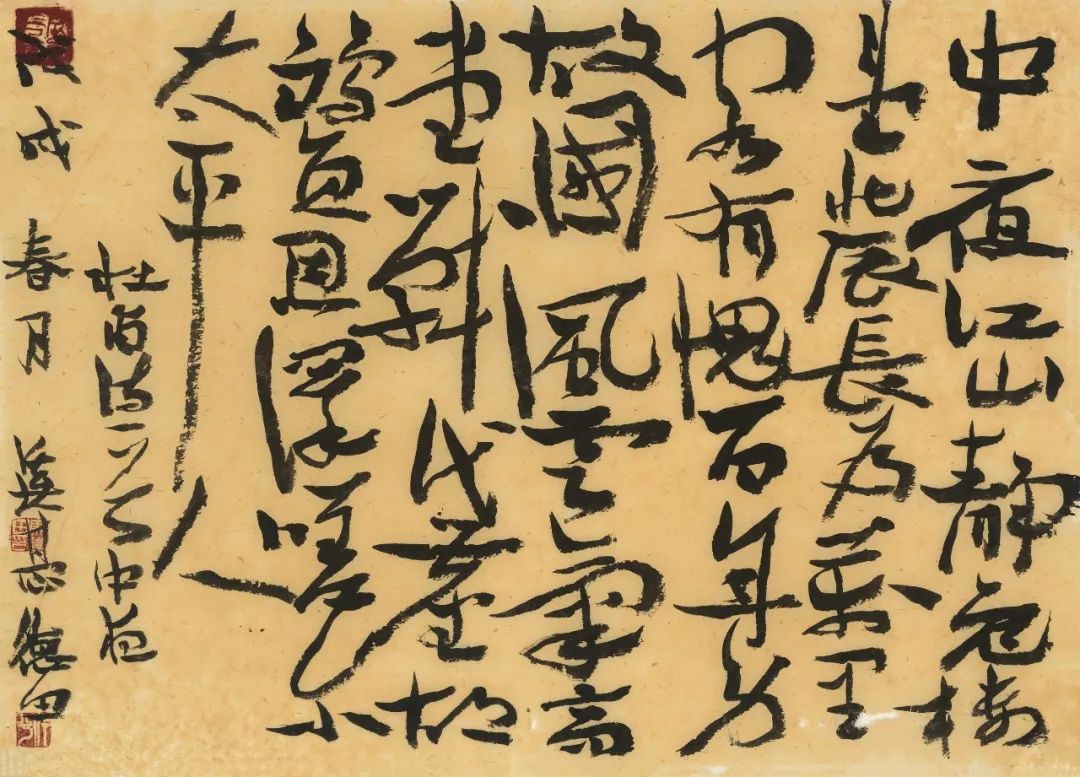 中夜江山靜危樓
望北辰長為萬里
客有愧百年身
故國風雲氣高
堂戰伐塵胡
雛負恩澤嗟爾
太平人
杜甫詩一首中夜
戌春月德田